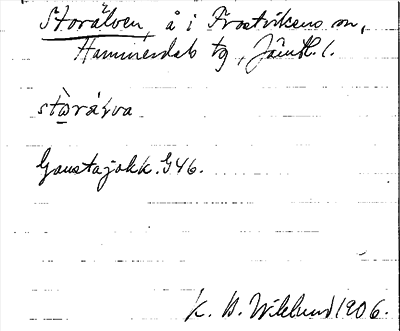 Storälven, å i Frostvikens sn,
Hammerdals tg, Jämtl. l.
stọ̀rá\u027dva
Gaustajokk. G46.
K. B. Wiklund 1906.